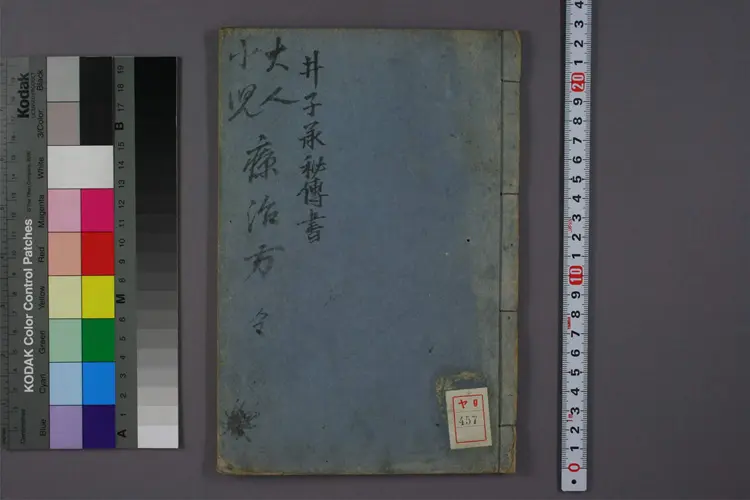 井子承秘傳書
大人
小児
療治方 全
ヤ 9
457
Kodak
KODAK Color Control Patches
Blue
Cyan
Green
Yellow
Red
Magenta
White
3/Color
Black
A 1 2 3 4 5 6 M 8 9 10 11 12 13 14 15 B 17 18 19
0 1 2 3 4 5 6 7 8 9 10 1 2 3 4 5 6 7 8 9 20 1 2 3 4